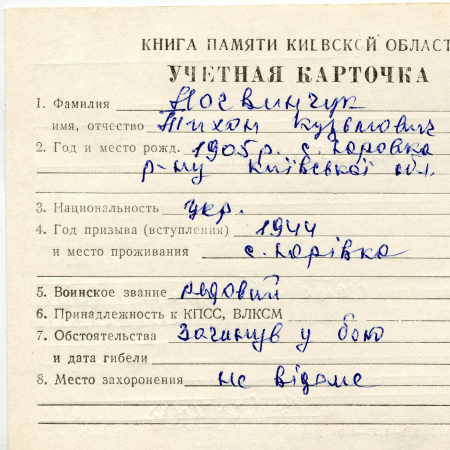 КНИГА ПАМЯТИ КИЕВСКОЙ ОБЛАСТ
УЧЕТНАЯ КАРТОЧКА
1. Фамилия
имя, отчество Тихон Кузьмович
2. Год и место рожд. 1905 р. с.
р-ну Київської обл.
3. Национальность укр.
4. Год призыва (вступления) 1944
и место проживания с.
5. Воинское звание рядовий
6. Принадлежность к КПСС, ВЛКСМ
7. Обстоятельства Загинув у бою
и дата гибели
8. Место захоронения не відоме